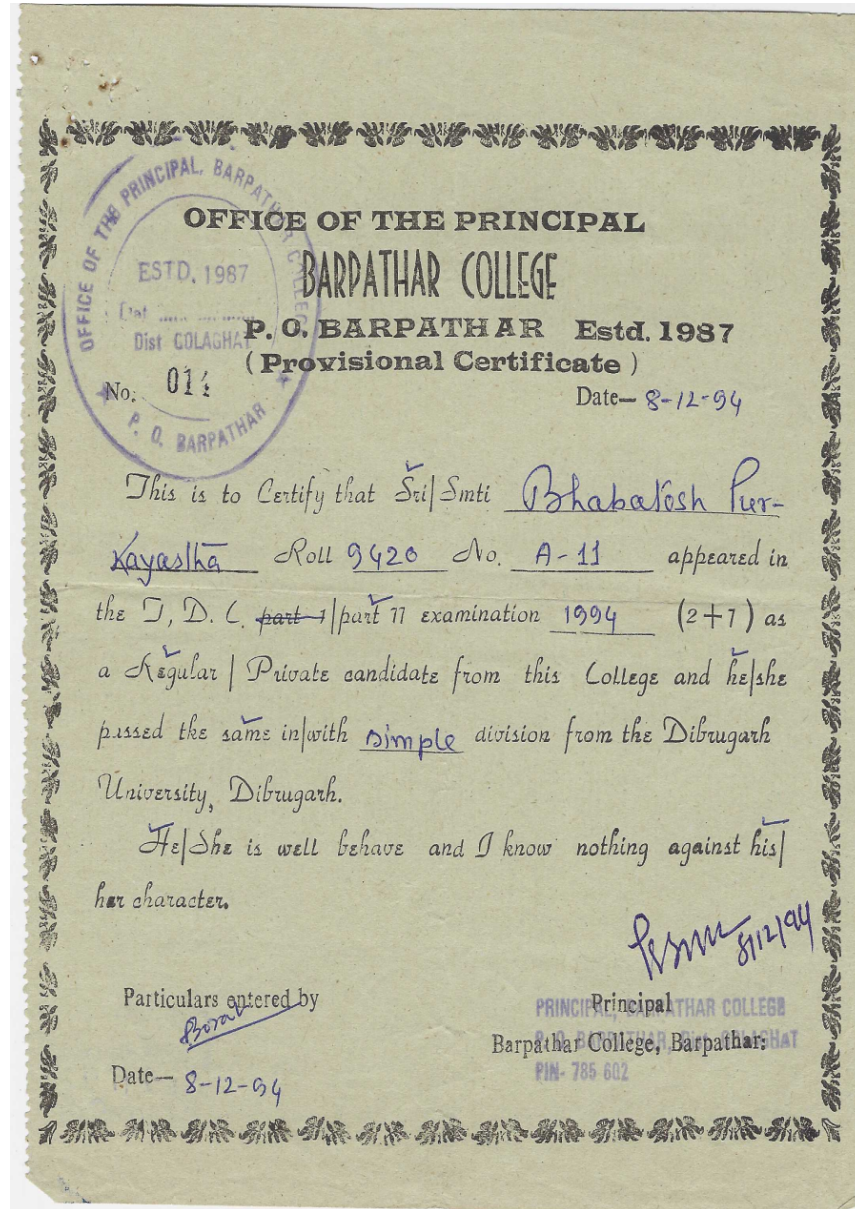 OFFICE OF THE PRINCIPAL, BARPATHAR COLLEGE
ESTD. 1987
Dist GOLAGHAT
P. O. BARPATHAR
OFFICE OF THE PRINCIPAL
BARPATHAR COLLEGE
P. O. BARPATHAR Estd. 1987
(Provisional Certificate)
No. Date— 8-12-94
This is to Certify that Sri/Smti Bhabatosh Pur-
kayastha Roll 9420 No. A-11 appeared in
the T, D. C. part 1/part 11 examination 1994 (2+1) as
a Regular / Private candidate from this College and he/she
passed the same in/with simple division from the Dibrugarh
University, Dibrugarh.
He/She is well behave and I know nothing against his/
her character.
8/12/94
Particulars entered by Principal
Borah
Barpathar College, Barpathar:
PRINCIPAL, BARPATHAR COLLEGE
P. O. BARPATHAR, Dist. GOLAGHAT
PIN- 785 602
Date— 8-12-94